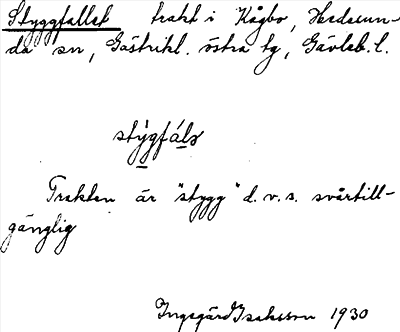 Styggfallet trakt i Kågbo, Hedesun-
da sn, Gästrikl. östra tg, Gävleb. l.
stýgfáls
Trakten är "stygg" d. v. s. svårtill-
gänglig
Ingegärd Isaksson 1930